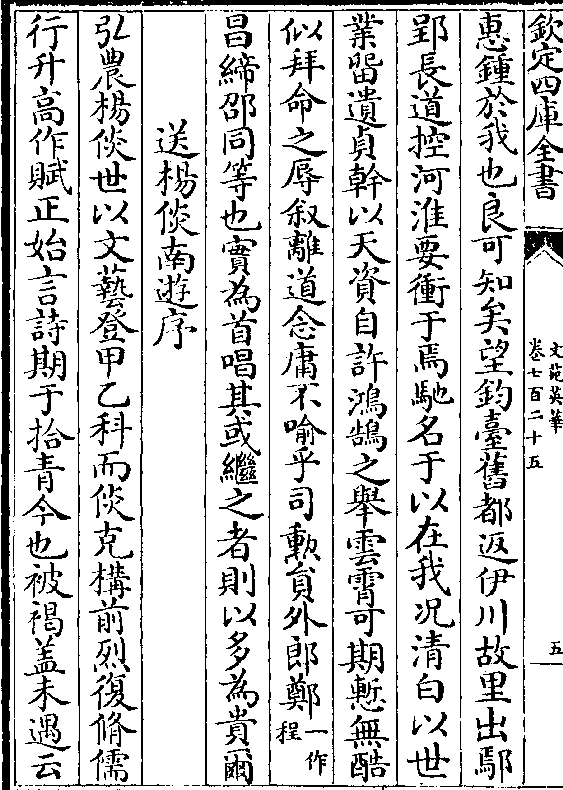 欽定四庫全書
文苑英華
卷七百二十五
五
惠鍾於我也良可知矣望鈞臺舊都返伊川故里出鄢
郢長道控河淮要衝于焉馳名于以在我况清白以世
業畱遺貞幹以天資自許鴻鵠之舉雲霄可期慙無酷
似拜命之辱叙離道念庸不喻乎司勲貟外郎鄭一作程
昌締邵同等也實為首唱其或繼之者則以多為貴爾
送楊倓南遊序
弘農楊倓世以文藝登甲乙科而倓克構前烈復脩儒
行升高作賦正始言詩期于拾青今也被褐盖未遇云